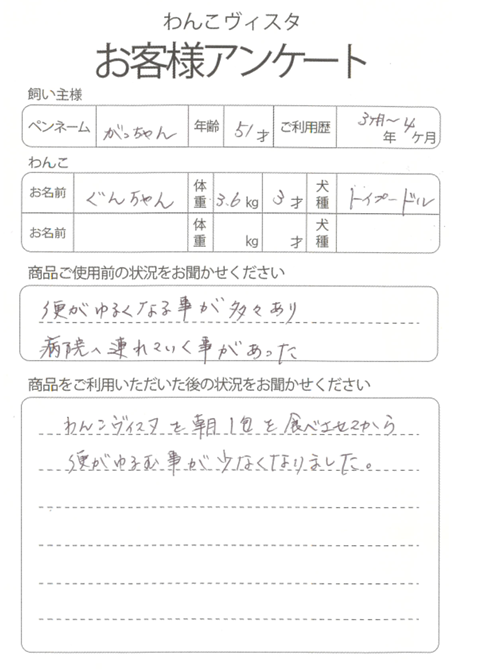 わんこヴィスタ
お客様アンケート
飼い主様
ペンネーム がっちゃん 年齢 51才 ご利用歴 3ヶ月〜4 年 ヶ月
わんこ
お名前 ぐんちゃん 体重 3.6kg 3才 犬種 トイプードル
お名前 体重 kg 才 犬種
商品ご使用前の状況をお聞かせください
便がゆるくなる事が多々あり
病院へ連れていく事があった
商品をご利用いただいた後の状況をお聞かせください
わんこヴィスタを朝1包を食べさせてから
便がゆるむ事が少なくなりました。